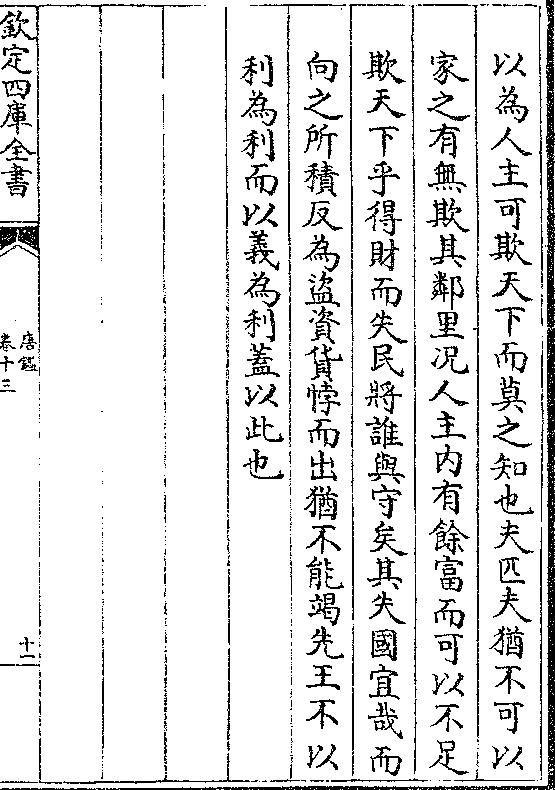 以為人主可欺天下而莫之知也夫匹夫猶不可以
家之有無欺其鄰里况人主内有餘富而可以不足
欺天下乎得財而失民將誰與守矣其失國宜哉而
向之所積反為盜資貨悖而出猶不能竭先王不以
利為利而以義為利蓋以此也
欽定四庫全書
唐鑑
卷十三
十一